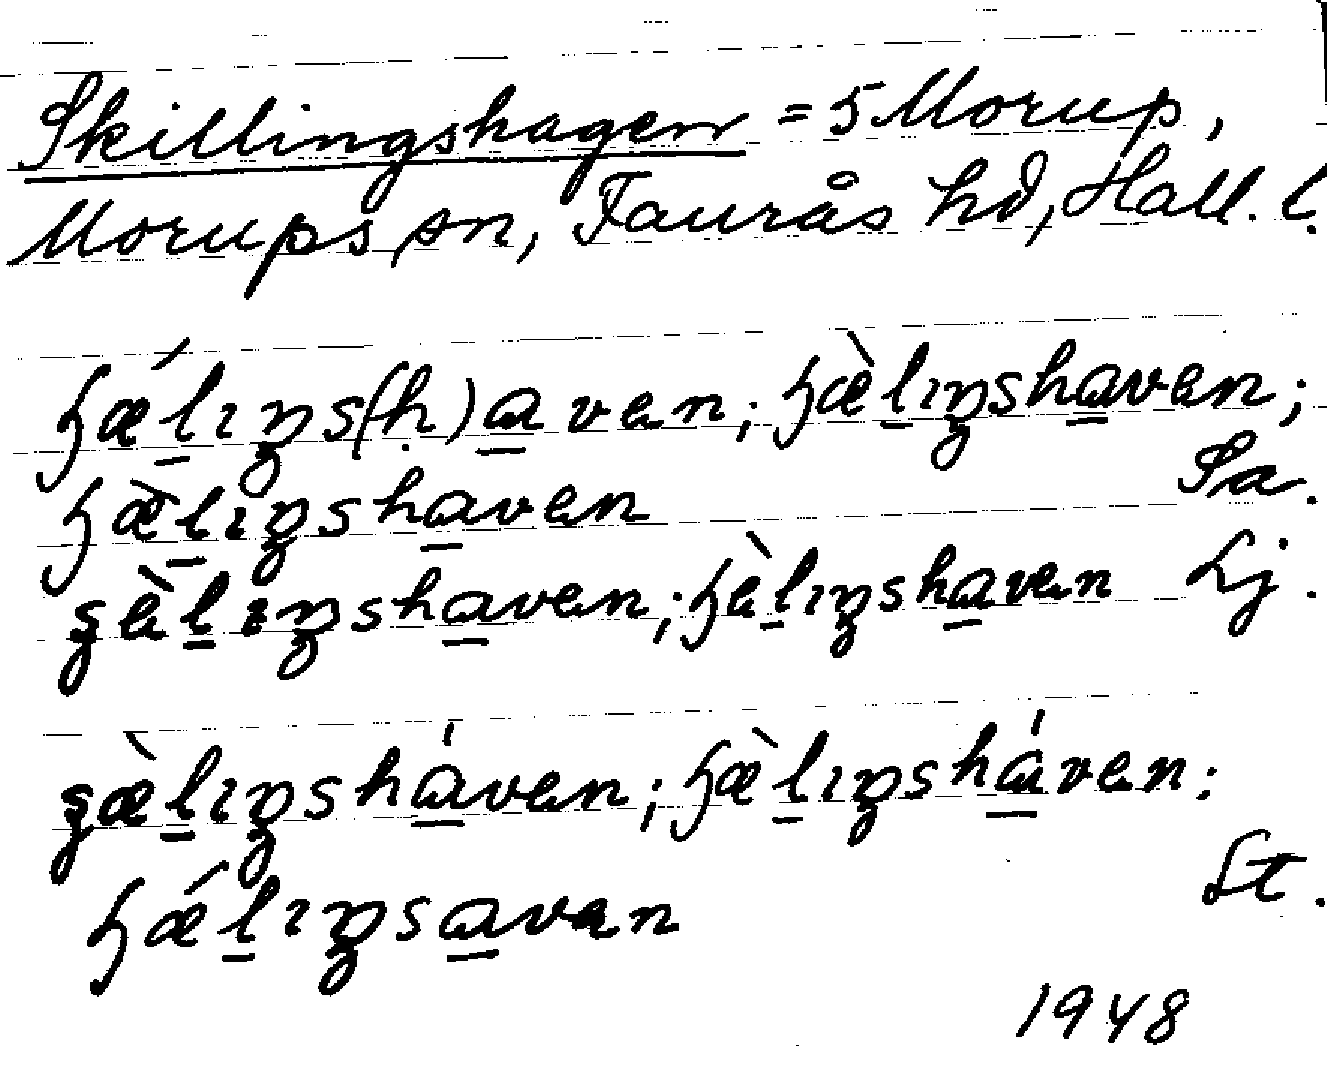 Skillingshagen = 5 Morup,
Morups sn, Faurås hd, Hall. l.
ɧǽl̲ıŋs(h)a̲ven; ɧæ̀l̲ıŋsha̲ven;
ɧæ̀l̲ıŋsha̲ven Sa.
ʂèl̲ıŋsha̲ven; ɧèl̲ıŋsha̲ven Lj.
ʂæ̀l̲ıŋshá̲ven; ɧæ̀l̲ıŋshá̲ven;
ɧǽl̲ıŋsa̲ven St.
1948